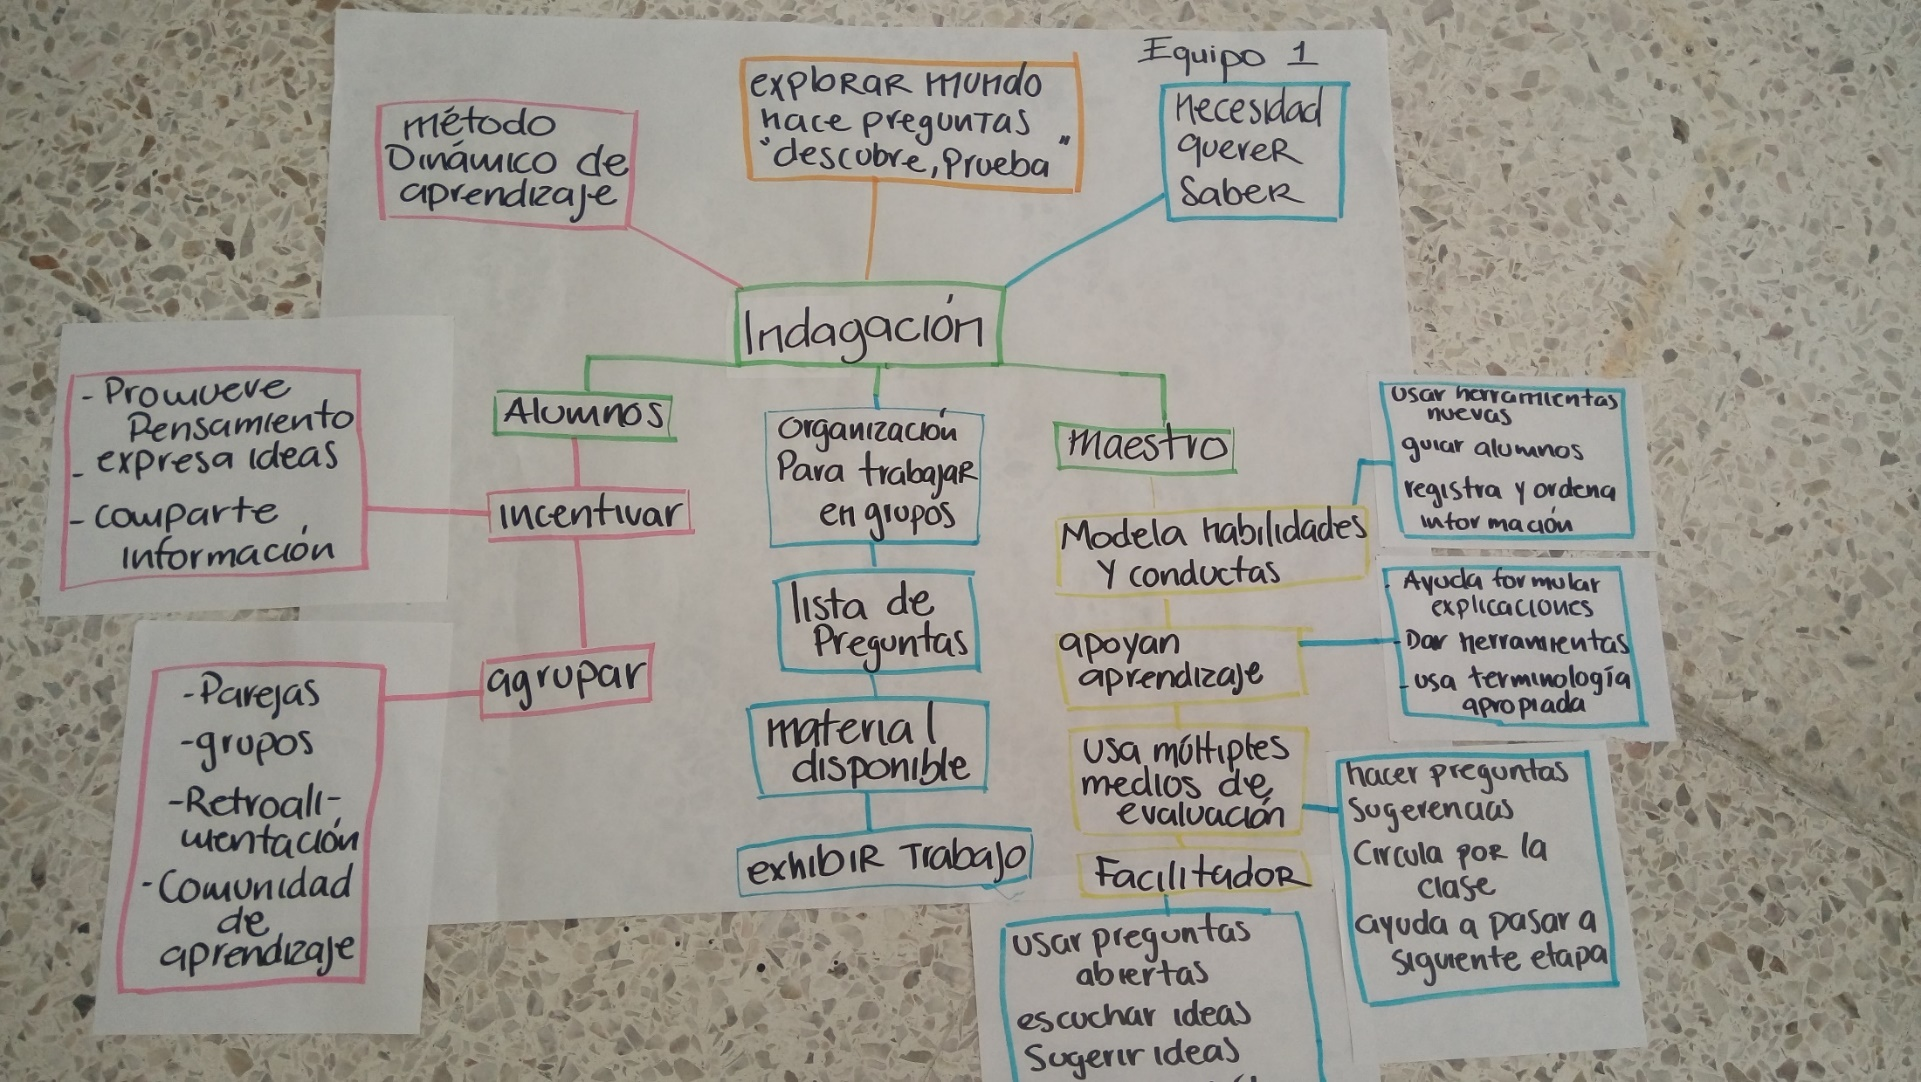 Equipo 1
método
Dinámico de
aprendizaje
explorar mundo
hace preguntas
"descubre, Prueba"
Necesidad
querer
Saber
Indagación
Alumnos
incentivar
- Promueve
Pensamiento
- expresa ideas
- comparte
información
agrupar
- Parejas
- grupos
- Retroali-
mentación
- Comunidad
de
aprendizaje
organización
Para trabajar
en grupos
lista de
Preguntas
material
disponible
exhibir Trabajo
maestro
Modela habilidades
y conductas
usar herramientas
nuevas
guiar alumnos
registra y ordena
información
apoyan
aprendizaje
- Ayuda formular
explicaciones
- Dar herramientas
- usa terminología
apropiada
usa múltiples
medios de
evaluación
hacer preguntas
Sugerencias
Circula por la
clase
ayuda a pasar a
siguiente etapa
Facilitador
usar preguntas
abiertas
escuchar ideas
Sugerir ideas